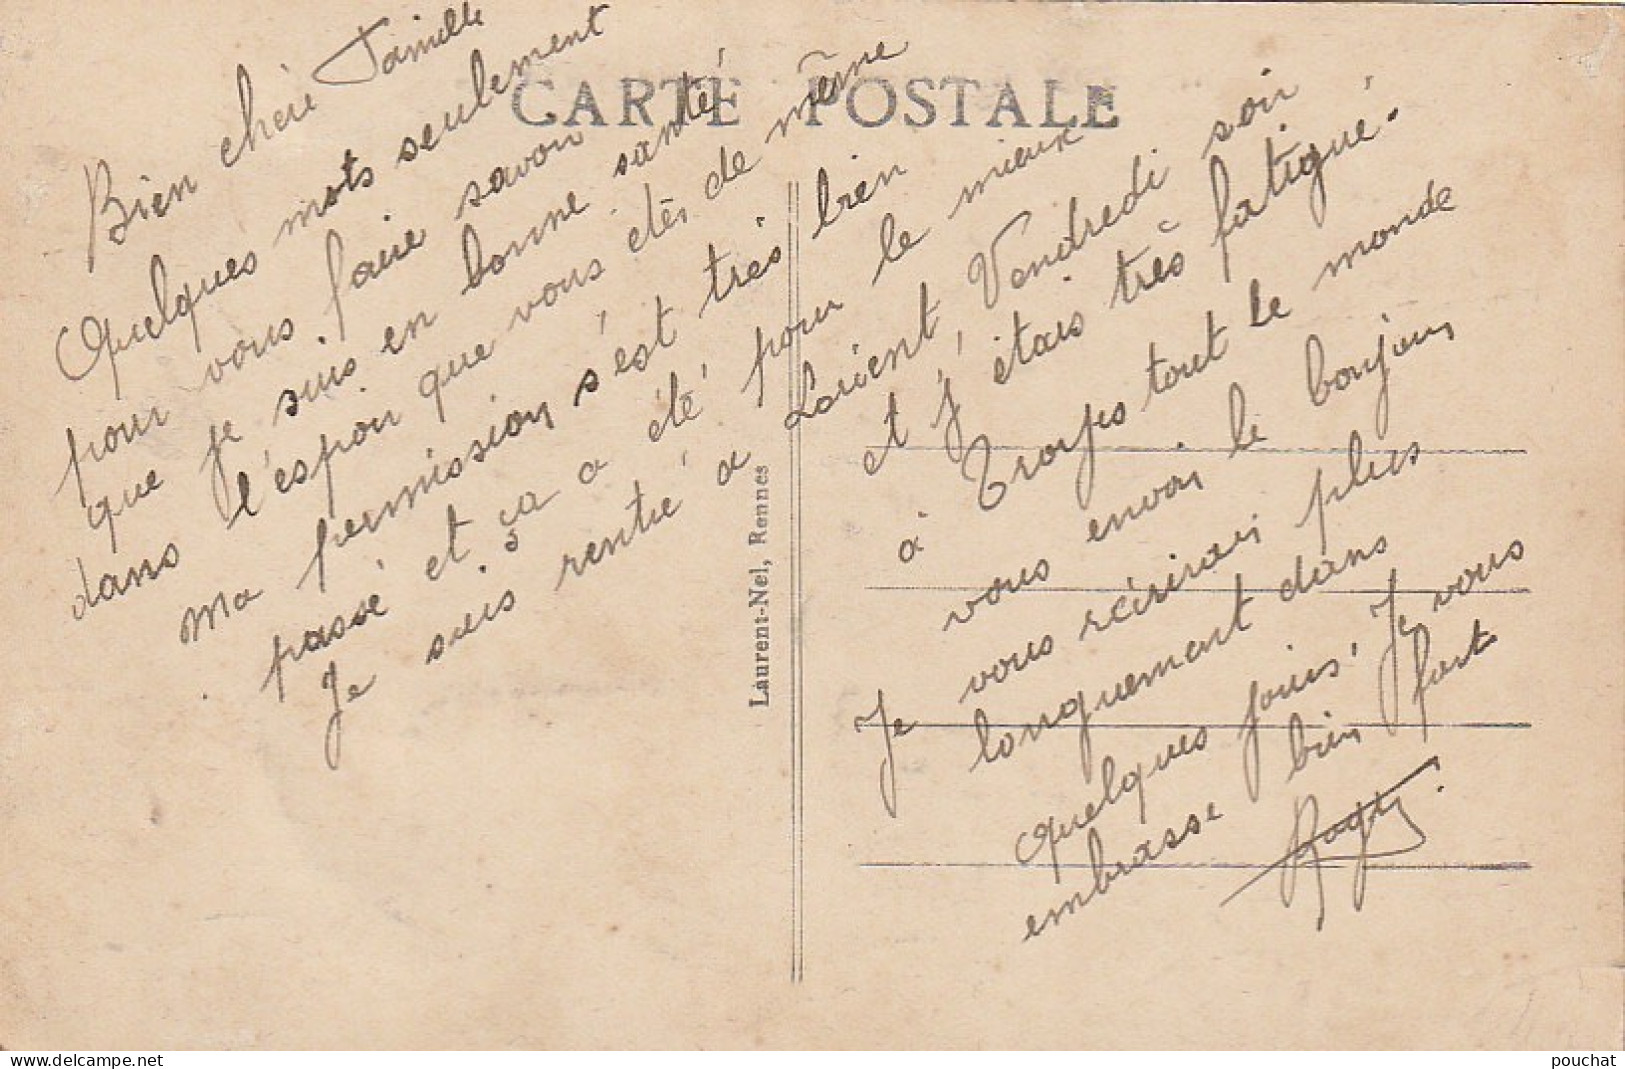 CARTE POSTALE
Bien chère Famille
Quelques mots seulement
pour vous faire savoir
que je suis en bonne santé
dans l'espoir que vous êtes de même
Ma permission s'est très bien
passé et ça a été pour le mieux
Je suis rentré a Lorient, Vendredi soir
et j'étais très fatigué.
à Troyes tout le monde
vous envoi le bonjour
Je vous récrirai plus
longuement dans
quelques jours. Je vous
embrasse bien fort
Laurent-Nel, Rennes
pouchat